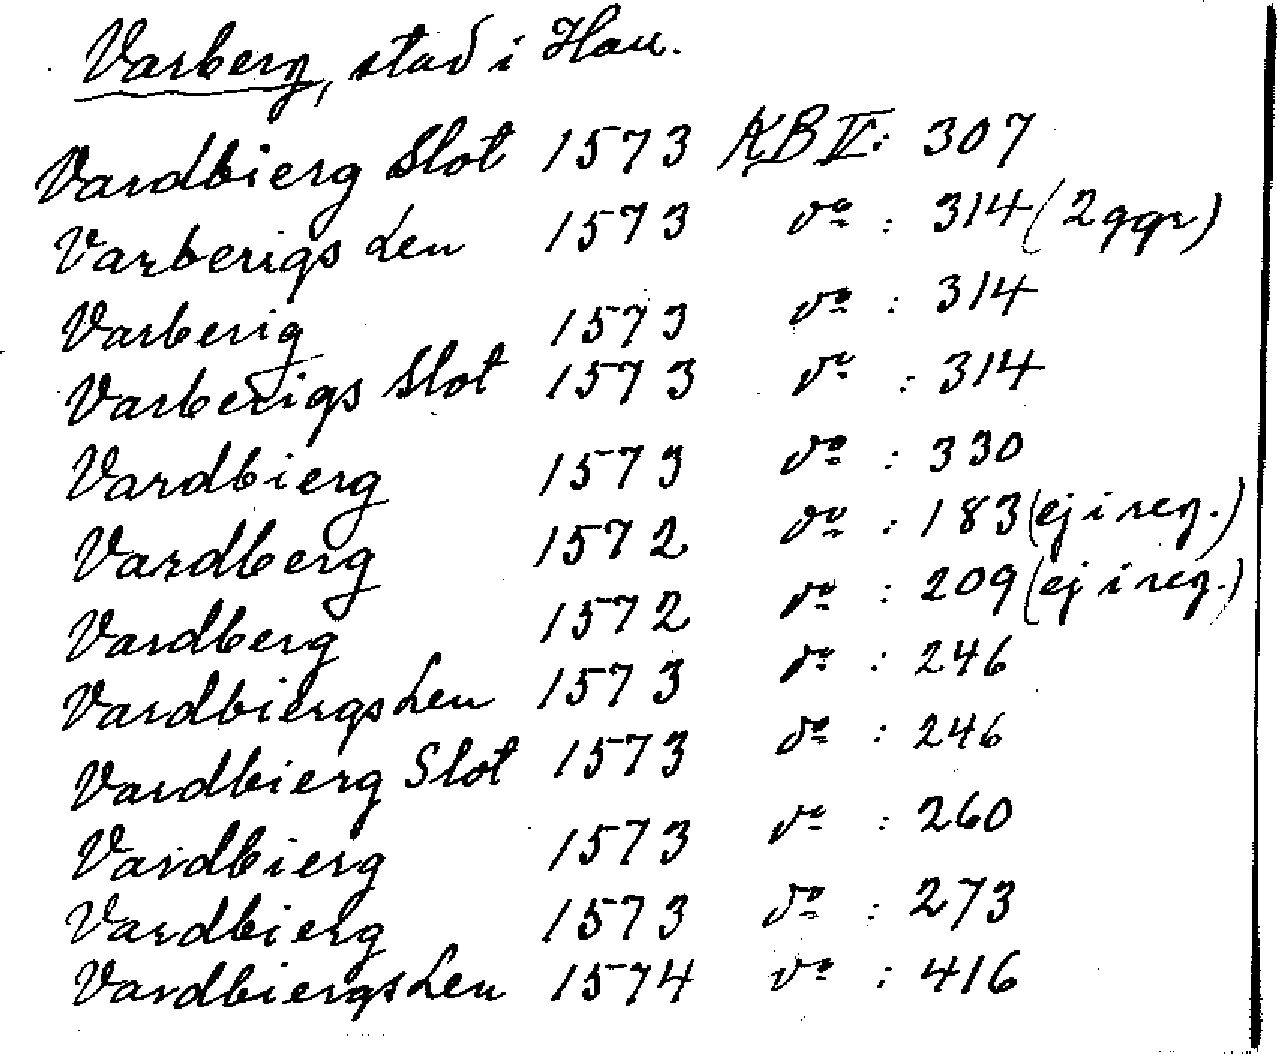 Varberg, stad i Hall.
Vardbierg Slot 1573 KB V: 307
Varberigs Len 1573 do : 314 (2 ggr)
Varberig 1573 do : 314
Varberigs Slot 1573 do : 314
Vardbierg 1573 do : 330
Vardberg 1572 do : 183 (ej i reg.)
Vardberg 1572 do : 209 (ej i reg.)
Vardbiergs Len 1573 do : 246
Vardbierg Slot 1573 do : 246
Vardbierg 1573 do : 260
Vardbierg 1573 do : 273
Vardbiergs Len 1574 do : 416